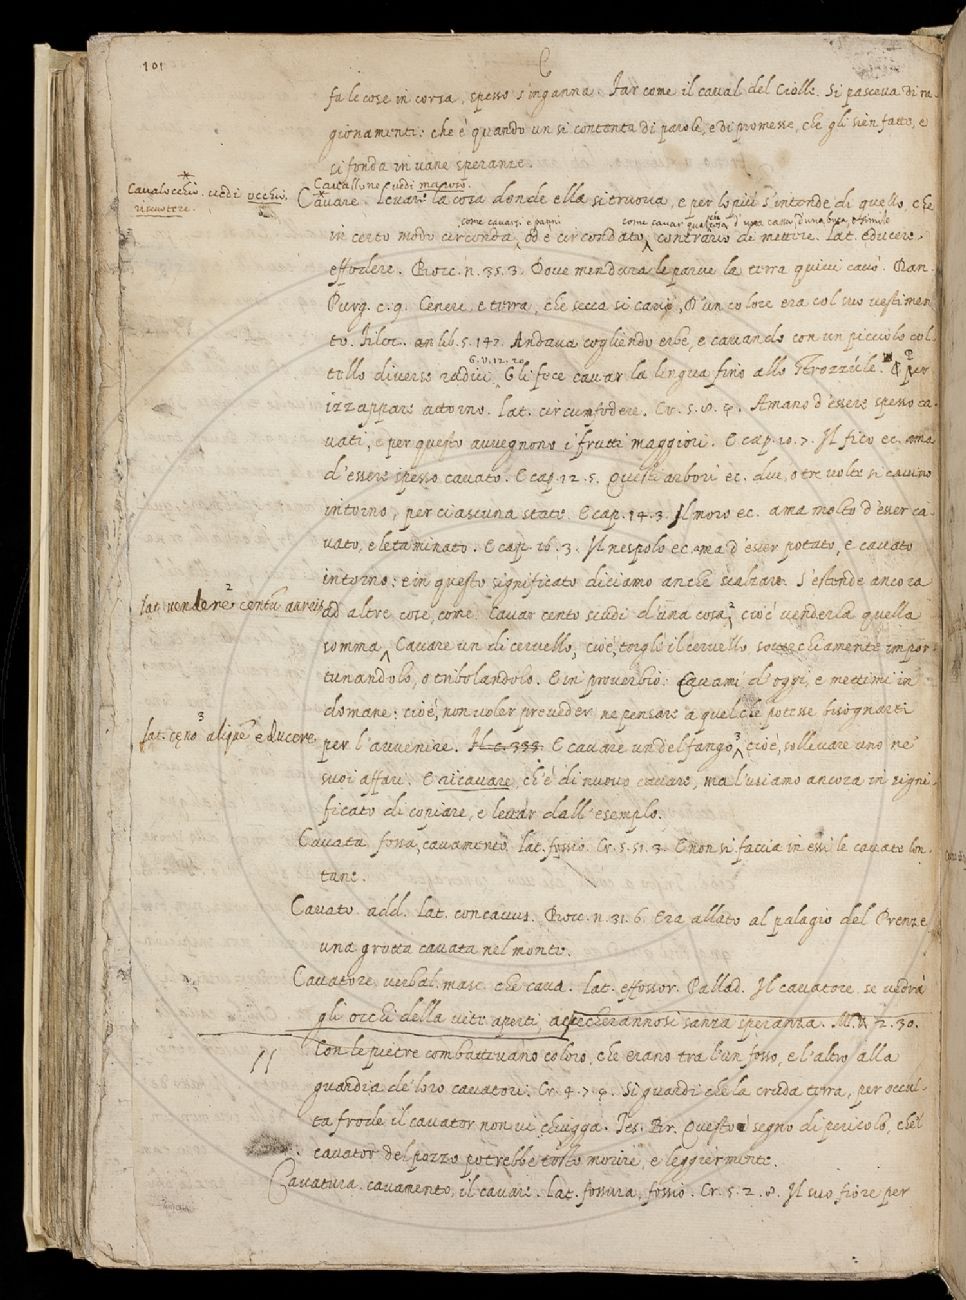 101
C
fa le cose in corsa, spesso s'inganna. Far come il caval del Ciolle. Si pasceva di ra-
gionamenti: che è quando un si contenta di parole, e di promesse, che gli sien fatte, e
ci fonda in vane speranze.
Cavalocchio. vedi occhio.
riscuotere.
Cavallone. vedi maroso.
Cavare. Levar la cosa donde ella si truova, e per lo più s'intende di quello, che
come cavarsi e panni come cavar qualcosa d'una cassa, d'una buca, e simile
in certo modo circonda, od è circondato, contrario di mettere. lat. educere,
effodere. Bocc. n. 35. 3. Dove men dura le parve la terra quivi cavò. Dan.
Purg. c. 9. Cenere, e terra, che secca si cavi, D'un colore era col suo vestimen
to. Filoc. lib. 5. 147. Andava cogliendo erbe, e cavando con un piccolo col-
G. V. 12. 20
tello diverse radici. Gli fece cavar la lengua fino allo strozzule. & per
izzappare attorno. lat. circumfodere. Cr. 5. 8. 4. Amano d'essere spesso ca-
vati, e per questo avvegnono i frutti maggiori. E cap. 10. 7. Il fico ec. ama
d'essere spesso cavato. E cap. 12. 5. Questi arbori ec. due, o tre volte si cavino
intorno, per ciascuna state. E cap. 14. 3. Il moro ec. ama molto d'esser ca-
vato, e letaminato. E cap. 16. 3. Il nespolo ec. ama d'esser potato, e cavato
intorno: e in questo significato diciamo anche scalzare. S'estende ancora
lat. vendere 2 centū aureis
ad altre cose, come. Cavar cento scudi d'una cosa, 2 cioè venderla quella
somma. Cavare un di cervello, cioè, torgli il cervello soverchiamente impor-
tunandolo, o tribolandolo. E in proverbio: Cavami d'oggi, e mettimi in
domane: cioè, non voler preveder, ne pensare a quel che potesse bisognarti
lat. cęno 3 aliquē educere.
per l'avvenire. Fl. c. 333. E cavare un del fango 3, cioè, sollevare uno ne'
suoi affari. E ricavare, ch'è di nuovo cavare, ma l'usiamo ancora in signi-
ficato di copiare, e levar dall'esemplo.
Cavata. fossa, cavamento. lat. fossio. Cr. 5. 51. 3. E non si faccia in essi le cavate lon-
tane.
Cavato. add. lat. concavus. Bocc. n. 31. 6. Era allato al palagio del Prenze
una grotta cavata nel monte.
Cavatore. verbal. masc. che cava. lat. effossor. Pallad. Il cavatore, se vedrà
gli occhi della vite aperti, accecherannosi sanza speranza. M. V. 2. 30.
Con le pietre combattevano coloro, che erano tra l'un fosso, e l'altro alla
guardia de' loro cavatori. Cr. 4. 7. 4. Si guardi che la cruda terra, per occul-
ta frode il cavator non vi chiugga. Tes. Br. Questo è segno di pericolo, che'l
cavator del pozzo potrebbe tosto morire, e leggiermente.
Cavatura. cavamento, il cavare. lat. fossura, fossio. Cr. 5. 2. 8. Il suo fiore per